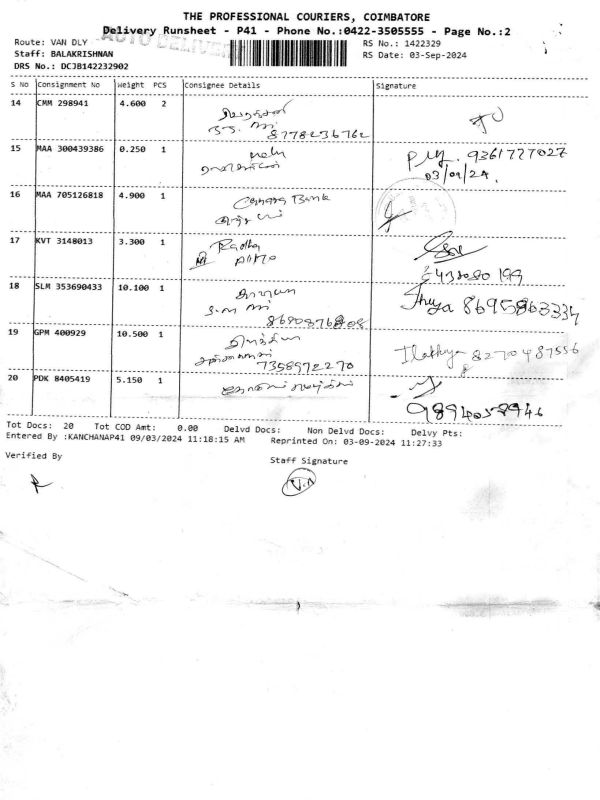 THE PROFESSIONAL COURIERS, COIMBATORE
Delivery Runsheet - P41 - Phone No.:0422-3505555 - Page No.:2
Route: VAN DLY
AUTO DELIVERY
RS No.: 1422329
Staff: BALAKRISHNAN
RS Date: 03-Sep-2024
DRS No.: DCJB142232902
S No Consignment No Weight PCS Consignee Details Signature
14 CMM 298941 4.600 2
8778236762
15 MAA 300439386 0.250 1
9361777027
03/09/24.
16 MAA 705126818 4.900 1 Canara Bank
17 KVT 3148013 3.300 1 Radha
Auto
18 SLM 353690433 10.100 1
Thuya 8695863334
8690876808
19 GPM 400929 10.500 1
Ilakhya 8270487556
7358972270
20 PDK 8405419 5.150 1
9894058946
Tot Docs: 20 Tot COD Amt: 0.00 Delvd Docs: Non Delvd Docs: Delvy Pts:
Entered By :KANCHANAP41 09/03/2024 11:18:15 AM Reprinted On: 03-09-2024 11:27:33
Verified By
Staff Signature